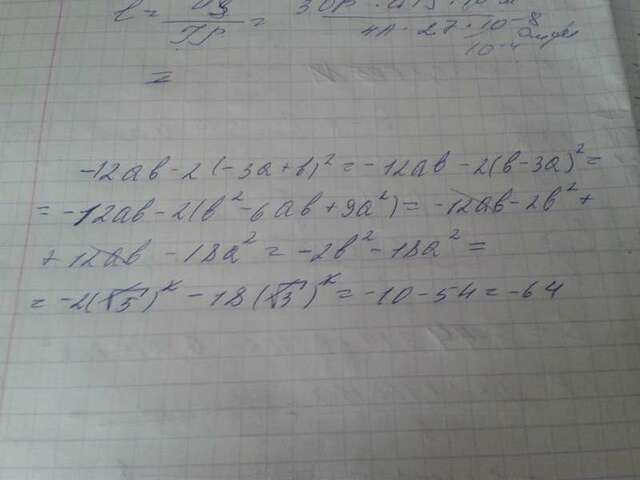 -12ab-2(-3a+b)²=-12ab-2(b-3a)²=
=-12ab-2(b²-6ab+9a²)=-12ab-2b²+
+12ab-18a²=-2b²-18a²=
=-2(√5)²-18(√3)²=-10-54=-64